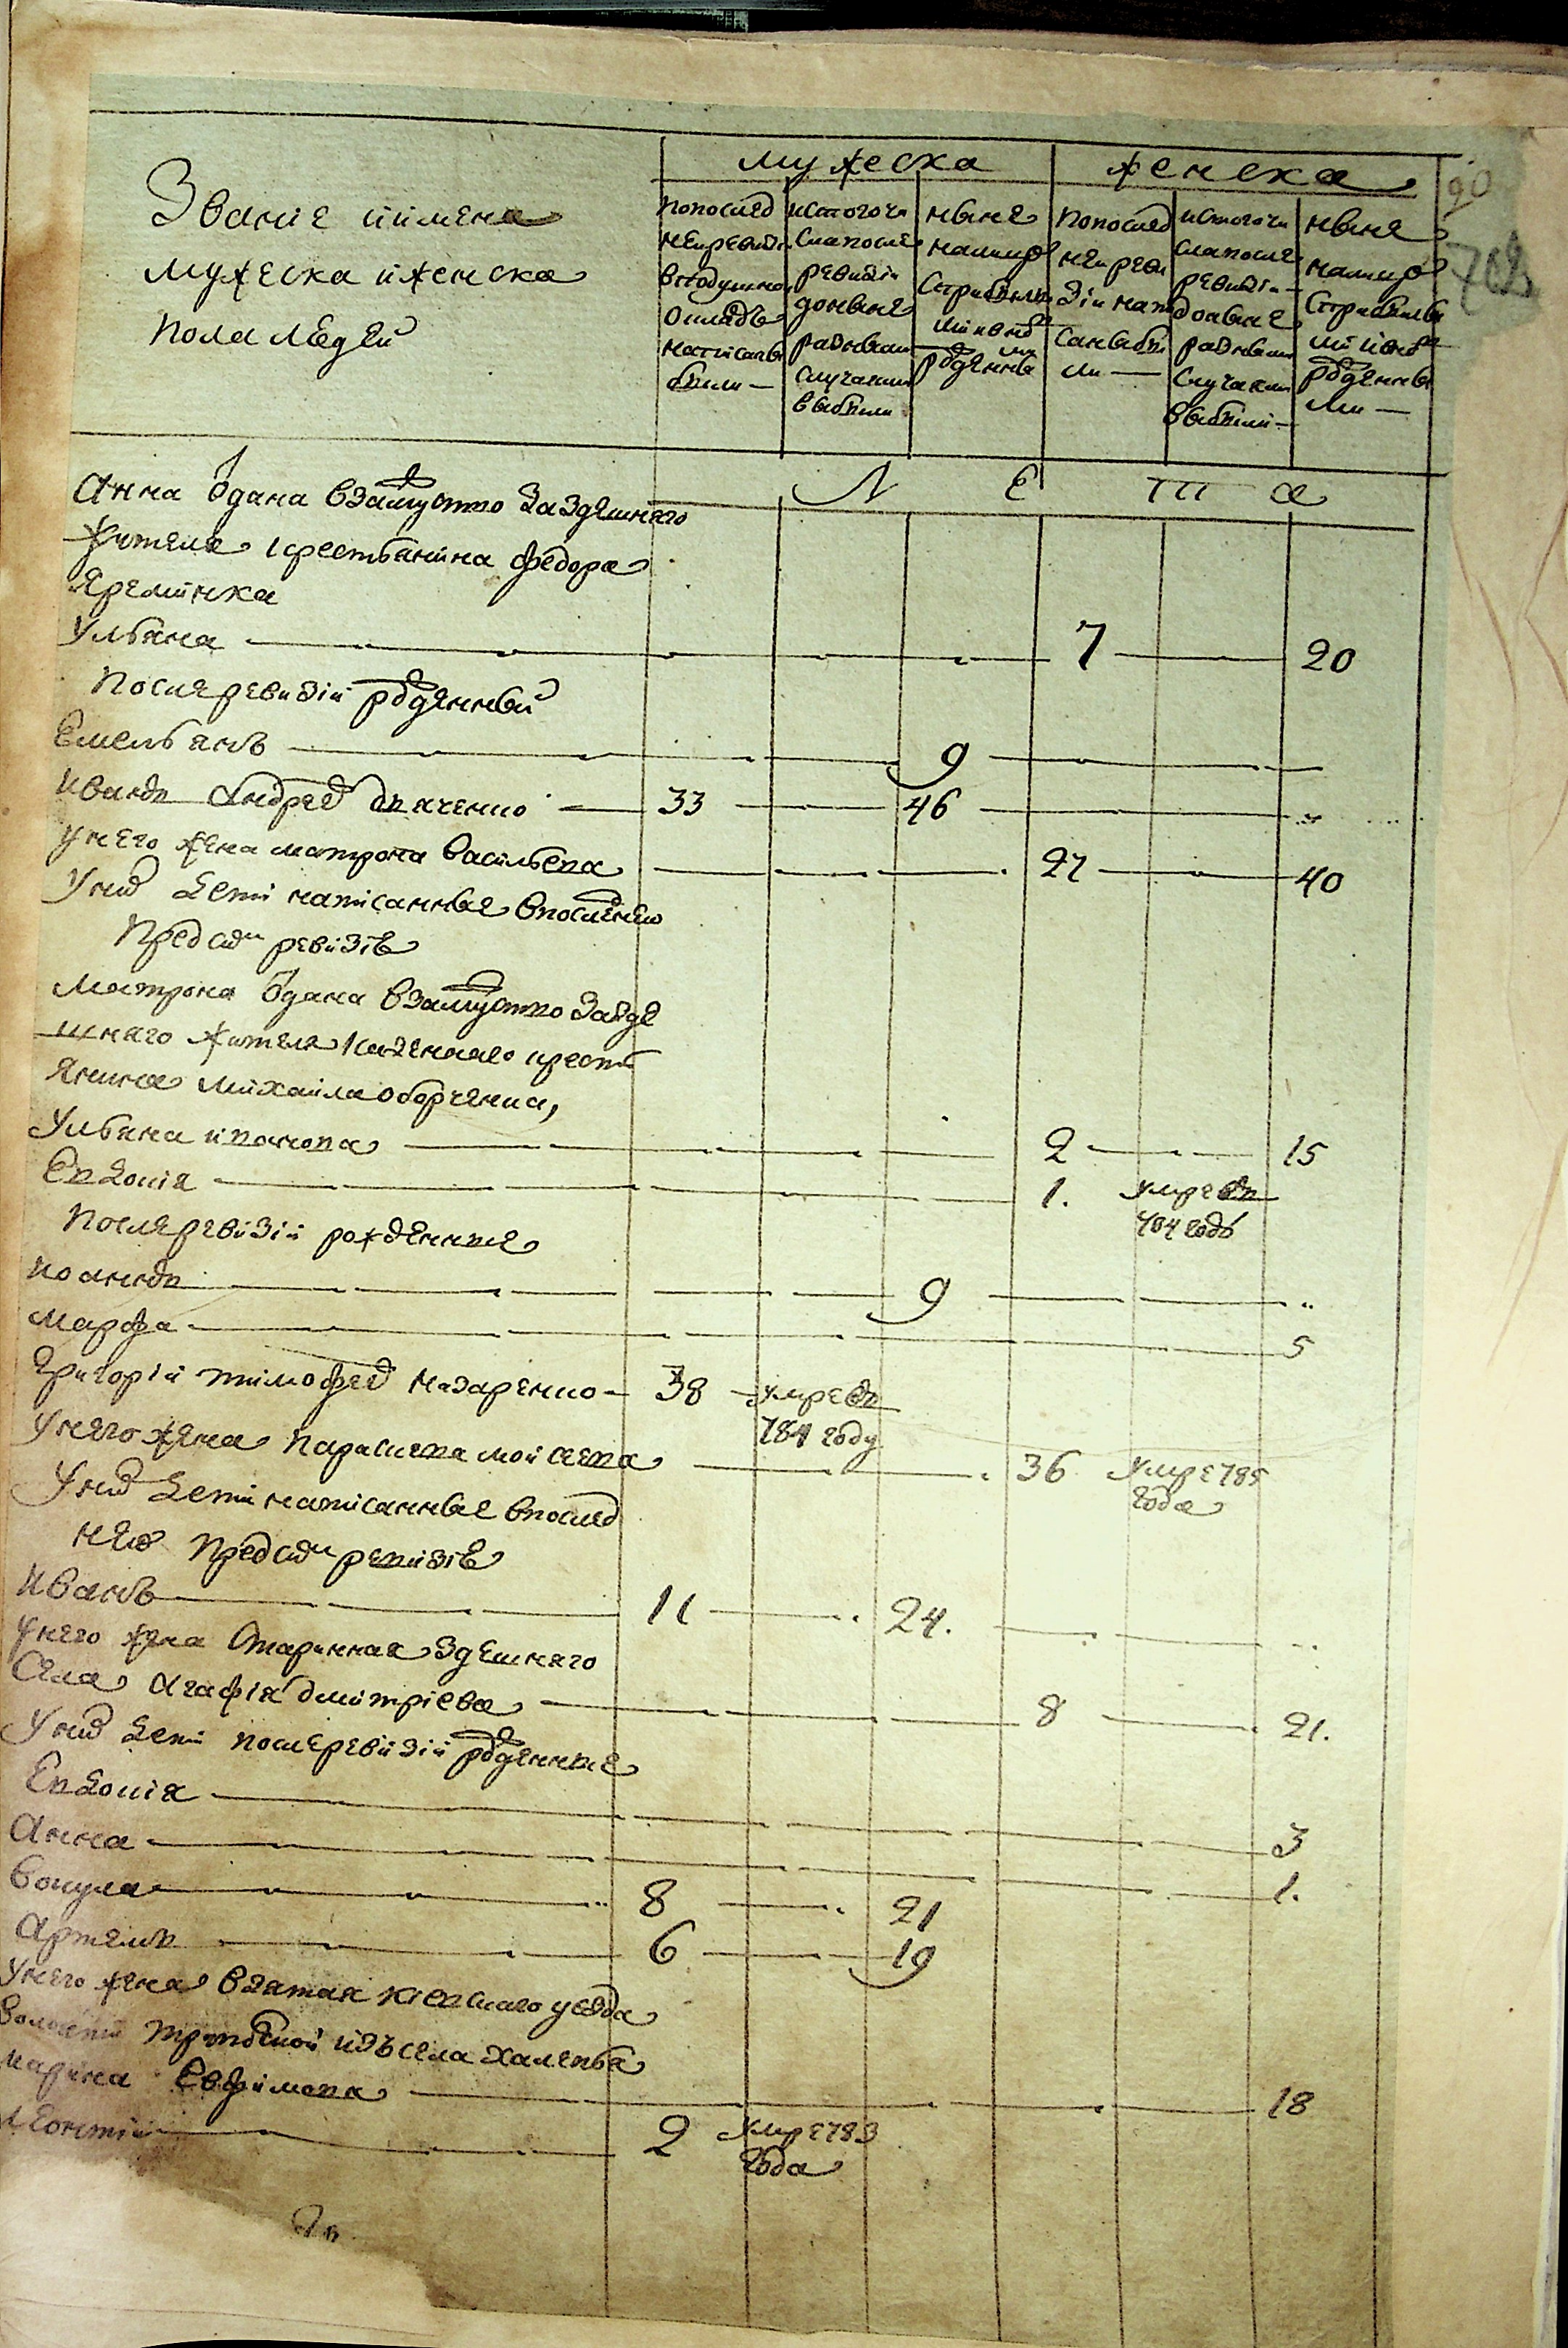 мужеска женска
90
702
Званіе и имена
мужеска и женска
пола людей
попослед
ней ревизіи
вподушно
окладѣ
написаны
были —
истого чи
сла после
ревизіи
до ныне
разными
случаями
выбыли
ныне
налицо
с прибылы
ми и вновь
рожденны
ми
попослед
ней реви
зіи напи
саны бы
ли —
истого чи
сла после
ревизіи —
до ныне
разными
случаями
выбыли —
ныне
налицо
с прибылы
ми и вновь
рожденны
ми —
Л Е Т А
Анна одана взамужство за здешнего
жителя крестьянина Федора
Яремѣнка
Ульяна — 7 — 20
После ревизіи рожденный
Емельянъ — 9 —
Иванъ Андреев Ткаченко — 33 — 46 —
У него жена Матрона Васильева — 27 — 40
У них дети написанные в последнею
пред сим ревизію
Матрона одана взамужство за зде
шнего жителя казенного крестъ
янина Михайла Оборченка,
Ульяна Иванова — 2 — 15
Евдокія — 1. умре въ
784 годѣ
После ревизіи рожденные
Иоаннъ — 9 —
Марфа — 5
Григорій Тимофеев Назаренко — 38 — умре въ
784 году
У него жена Парасковя Мойсеева — 36 умре 785
года
У них дети написанные в послед
нею пред сим ревизію
Иванъ — 11 — 24. —
У него жена старинная здешнего
села Агафія Дмитріева — 8 — 21.
У них дети после ревизіи рожденные
Евдокія — 3
Анна — 1.
Вакула — 8 — 21
Артемъ — 6 — 19
У него жена взятая Киевского уезда
волости Трипольской изъ села Халепья
Марина Евфимова — 18
Леонтій — 2 умре 783
года